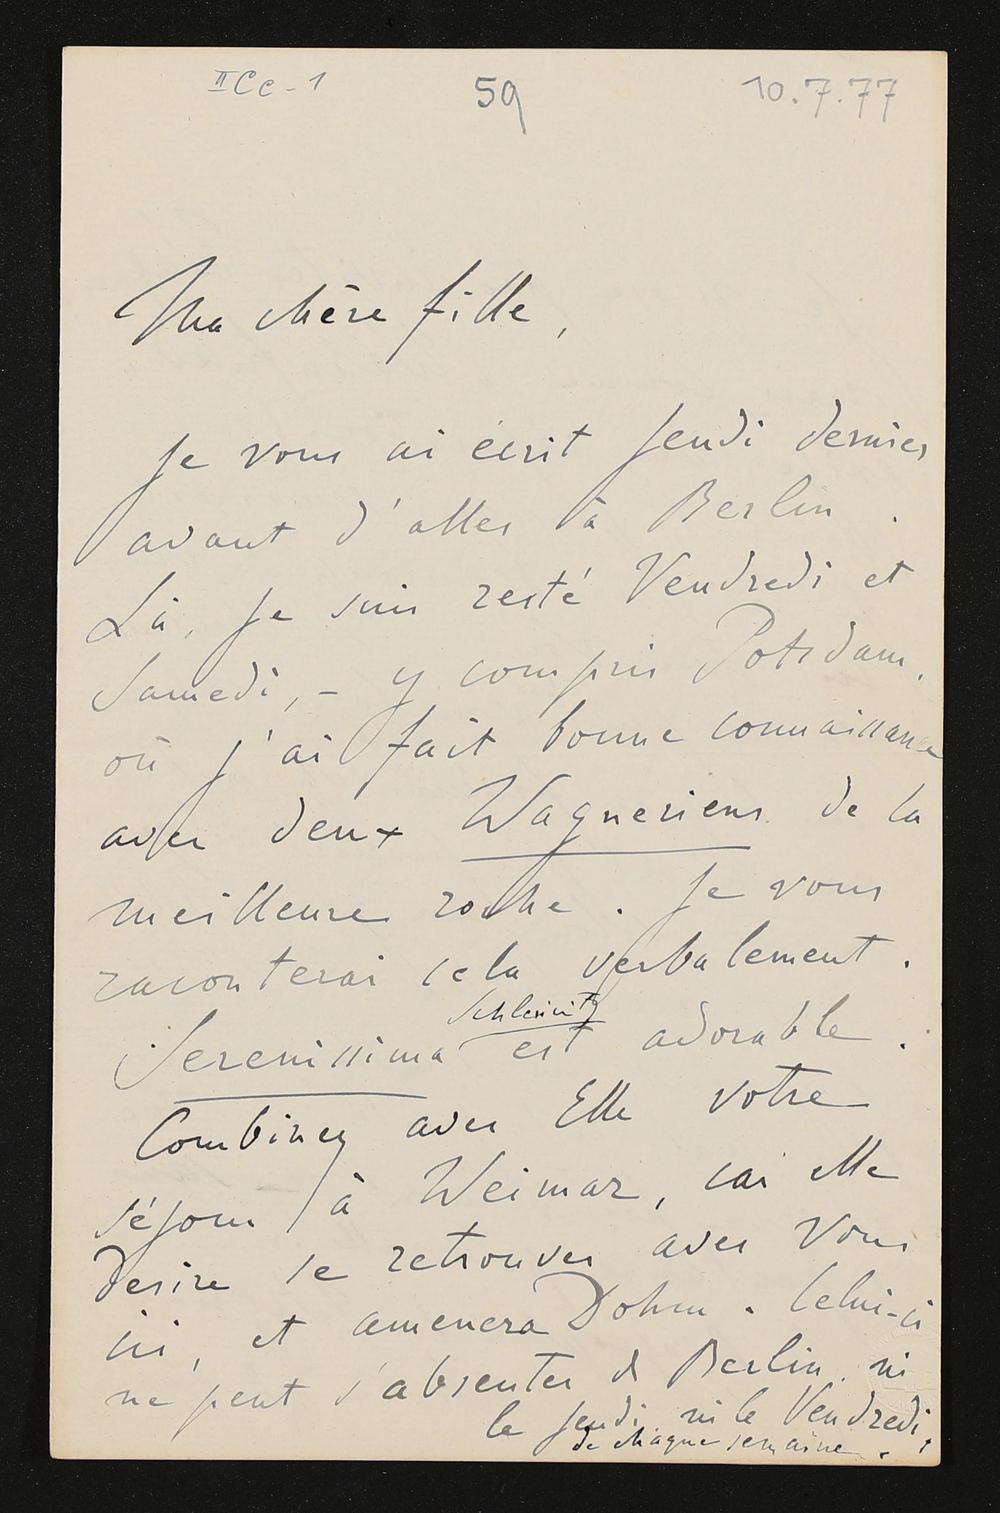 IICc-1 59 10.7.77
Ma chère fille,
Je vous ai écrit Jeudi dernier
avant d'aller à Berlin.
Là, je suis resté Vendredi et
Samedi, - y compris Potsdam,
où j'ai fait bonne connaissance
avec deux Wagneriens de la
meilleure roche. Je vous
raconterai cela verbalement.
Schleinitz
Serenissima est adorable.
Combinez avec Elle votre
séjour à Weimar, car elle
desire se retrouver avec Vous
ici, et amenera Dohm. Celui-ci
ne peut s'absenter de Berlin ni
le Jeudi, ni le Vendredi,
de chaque semaine.